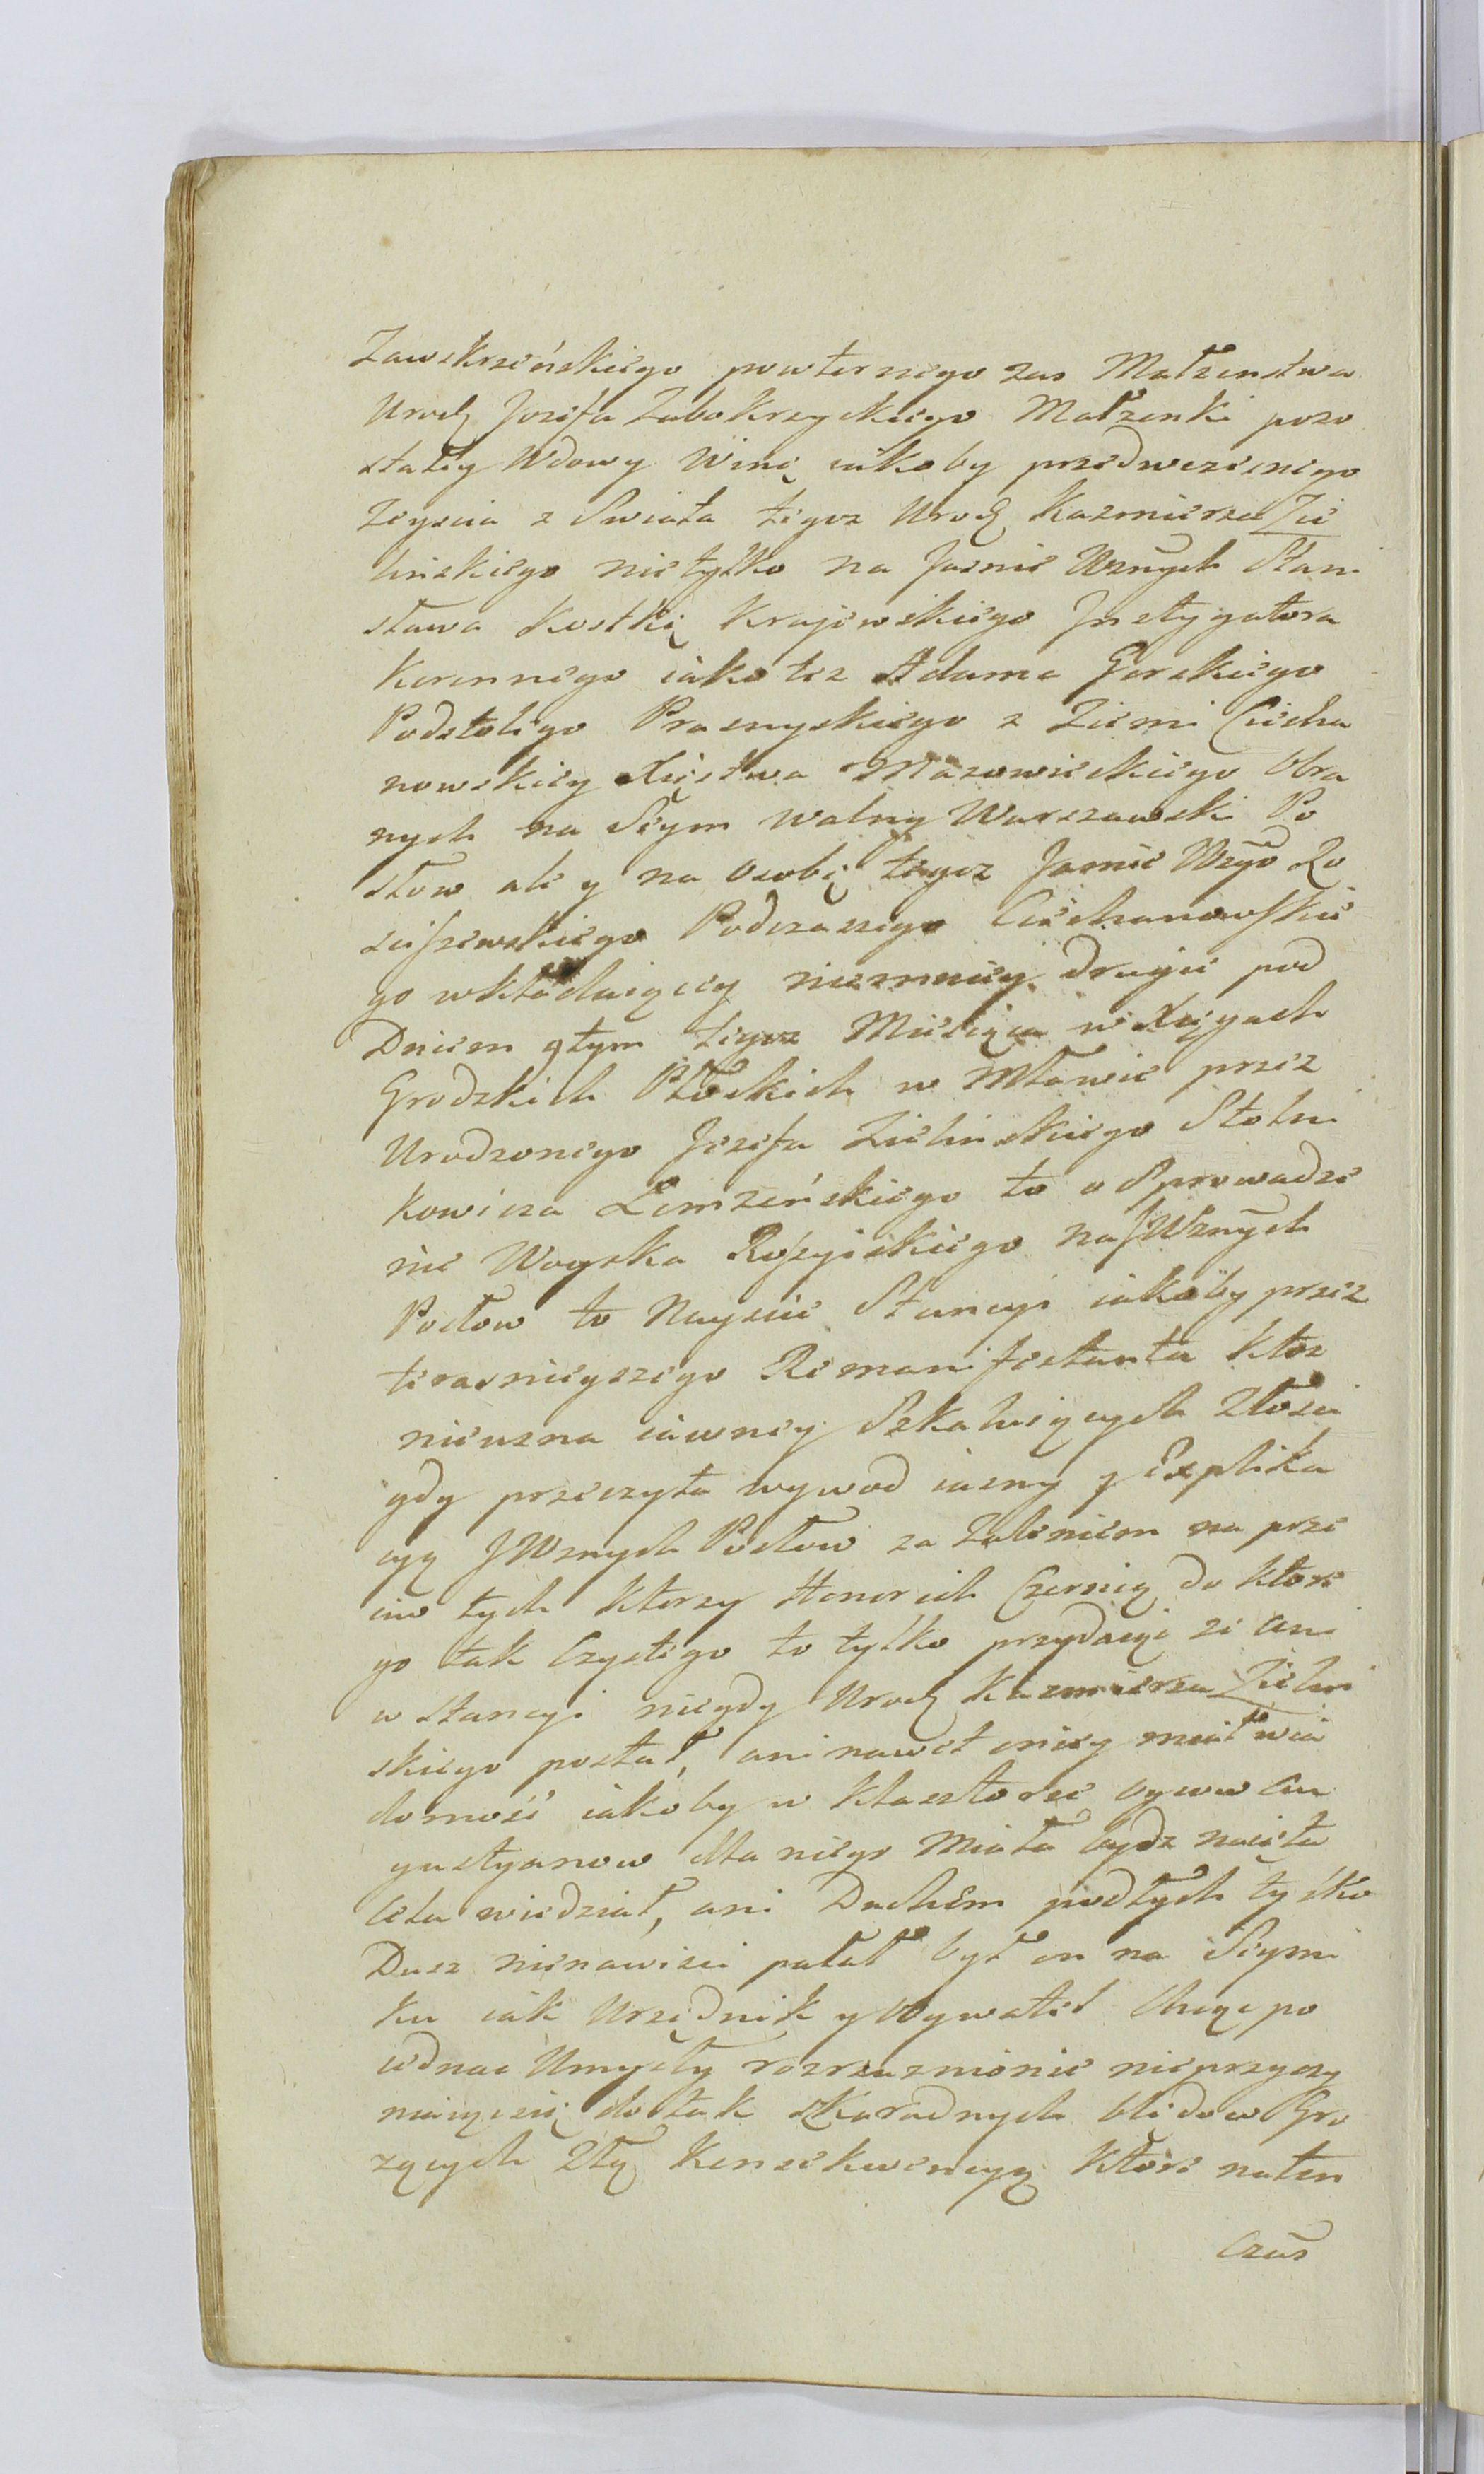 Zawskrzeńskiego powtornego zas Małzenstwa
Urodz Jozefa Zabokrzyckiego Małzenki pozo
stałey Wdowy Winę iakoby przedwczesnego
Zeyscia z Swiata tegoz Urodz Kazmierza Zie
linskiego nietylko na Jasnie Wznych Stani
sława Kostkę Krajewskiego Jnstygatora
Koronnego iako tez Adama Gorskiego
Podstolego Prasnyskiego z Ziemi Ciecha
nowskiey Xięstwa Mazowieckiego Obra
nych na Seym walny Warszawski Po
słow ale y na Osobę tegoz Jasnie Wzgo Ro
sciszewskiego Podczaszego Ciechanowskie
go wkładaiącey niemniey drugie pod
Dniem 9tym tegoz Miesiąca w Xięgach
Grodzkich Płockich w Mławie przez
Urodzonego Jozefa Zielinskiego Stolni
kowicza Łomzeńskiego to o Sprowadze
nie Woyska Rossyiskiego na JWznych
Posłow to Nayscie Stancyi iakoby przez
teraznieyszego Remanifestanta ktoz
nieuzna iawney Szkaluiących Złosci
gdy przeczyta wywod iasny y Explika
cyą JWznych Posłow za Zaleniem na prze
ciw tych ktorzy Honor ich Czernią do ktore
go tak Czystego to tylko przydaiąc ze ani
w Stancyi niegdy Urodz Kazmierza Zielin
skiego postał, ani nawet oniey miał wia
domość iakoby w klasztorze oycow Au
gustyanow dla niego Miała bydz naięta
Cela wiedział, ani Duchem podłych tylko
Dusz nienawisci pałał był on na Seymi
ku iak Urzędnik y Obywatel Chcąc po
iednac Umysły rozrzaznionie nieprzyczy
niaiącsię do tak szkaradnych błędow Gro
zących Złą Konsekwencyą ktore naten
Czas